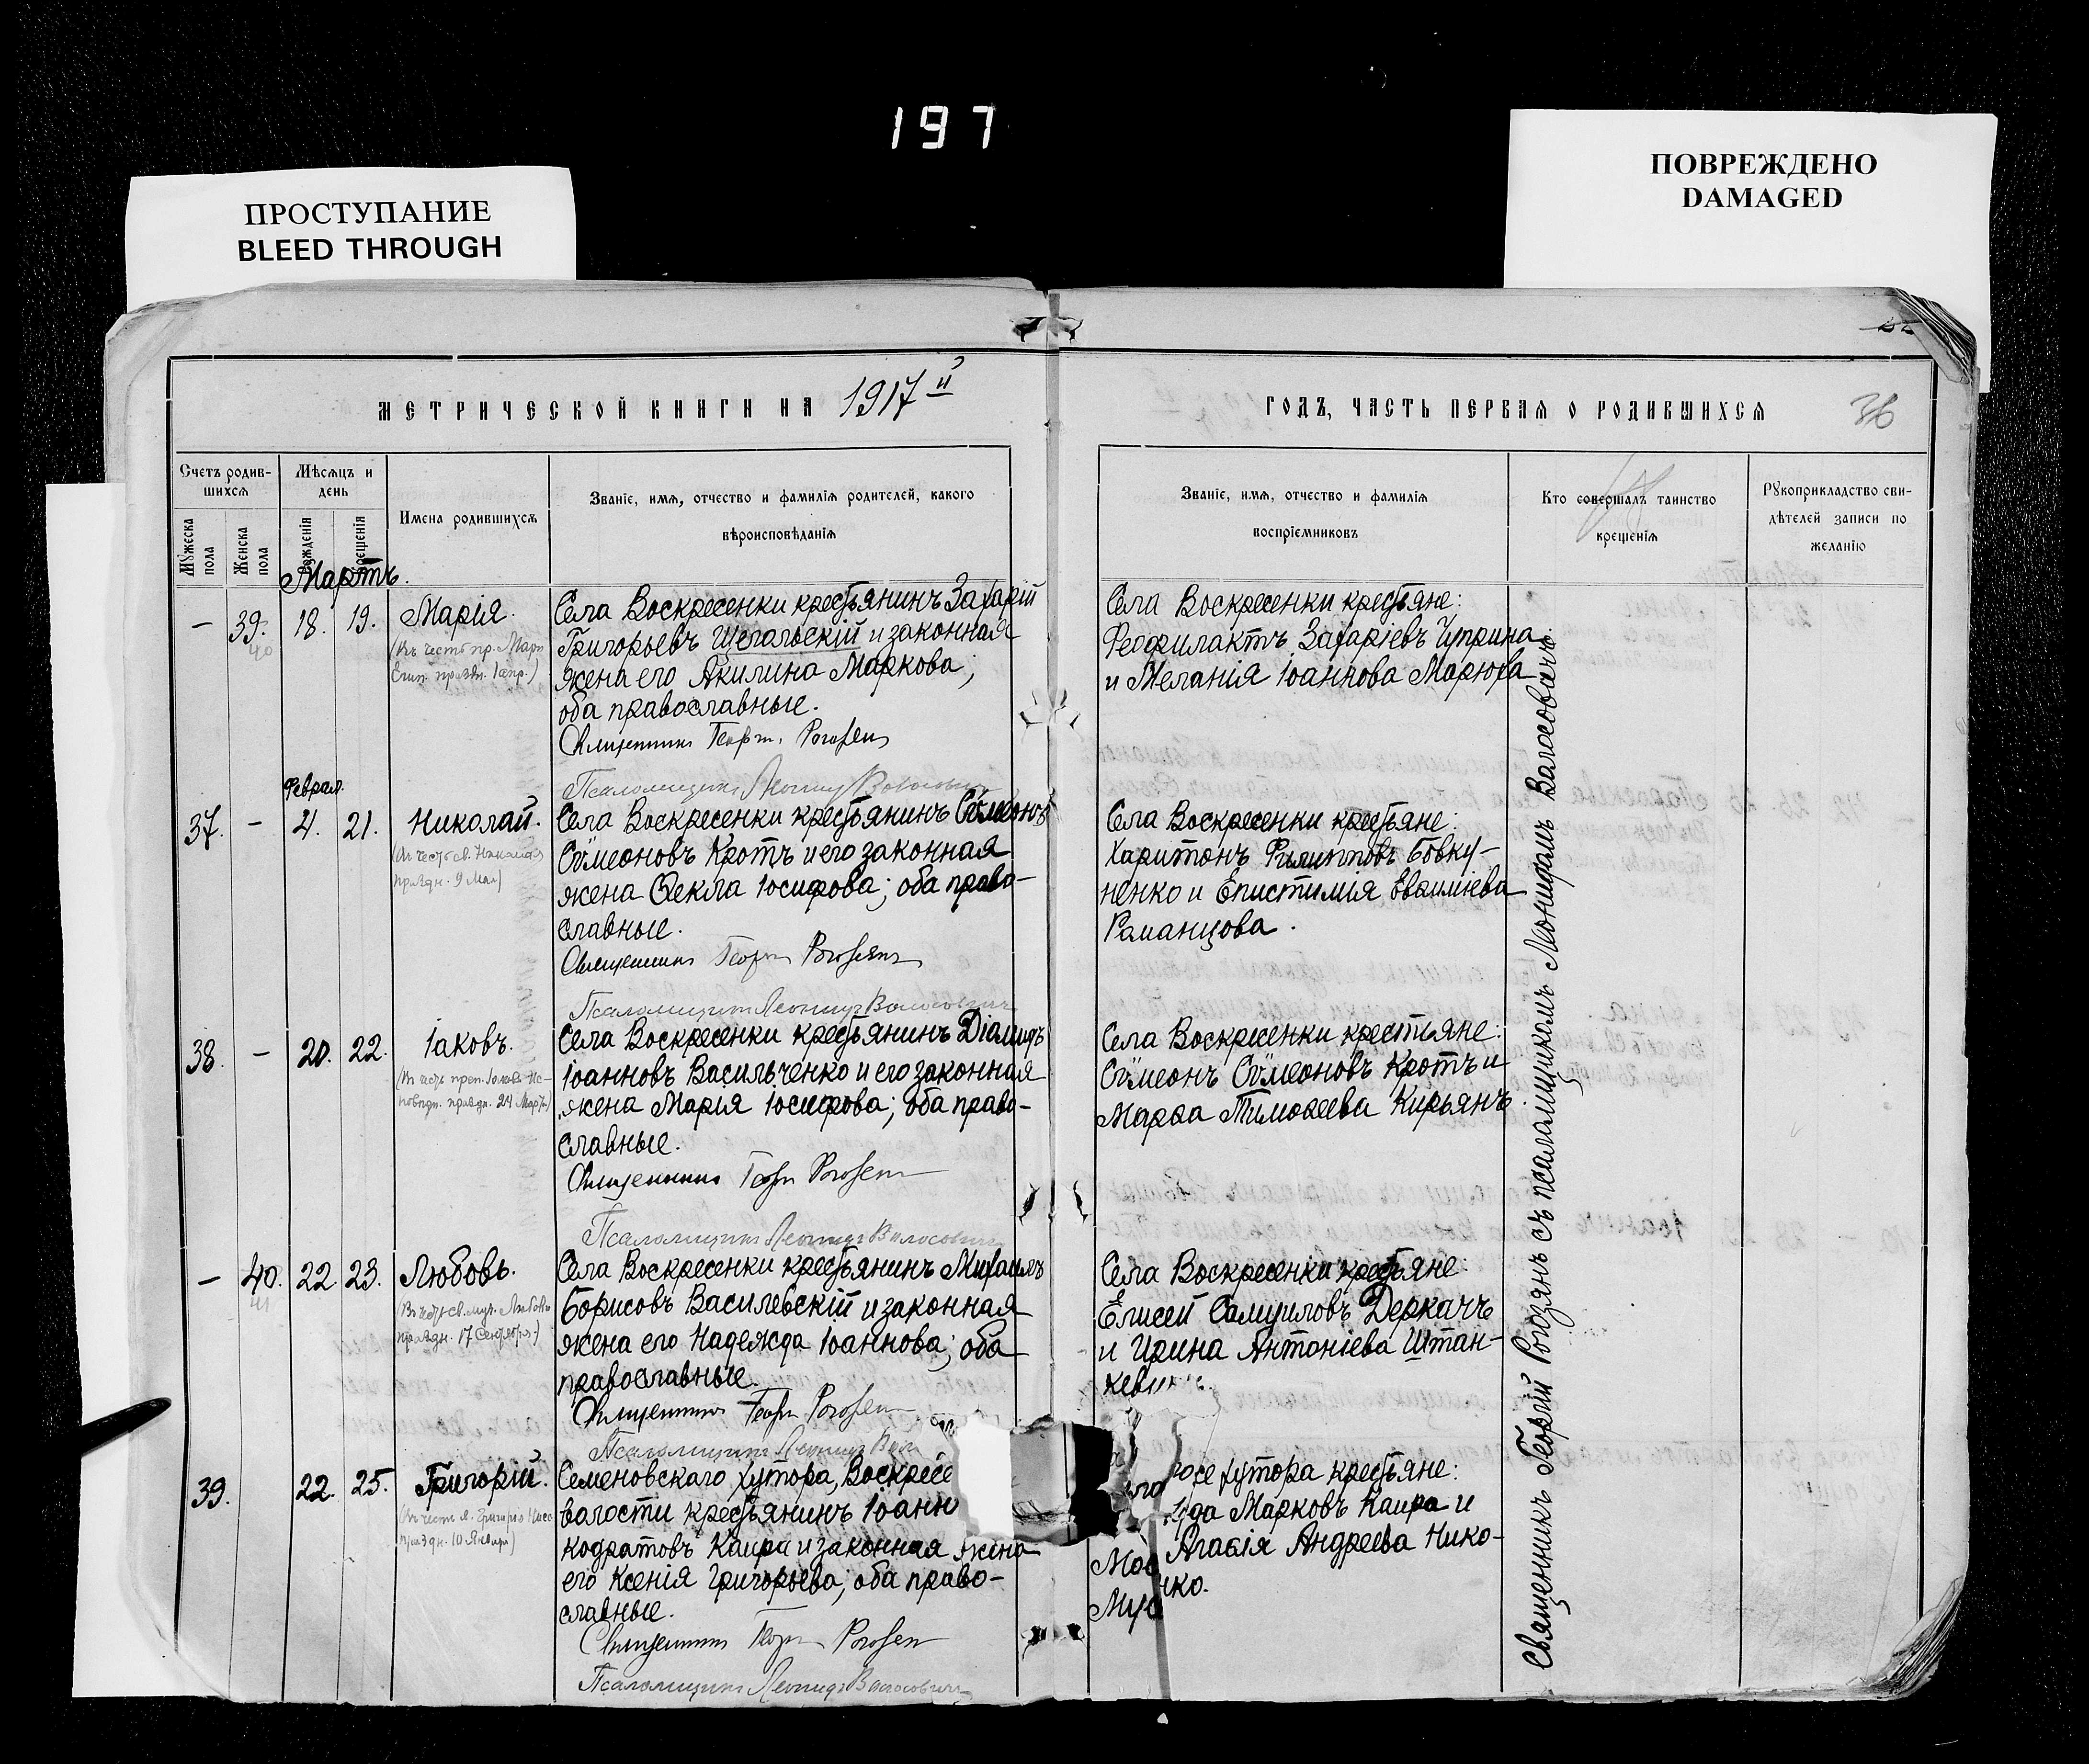 197
ПРОСТУПАНИЕ
BLEED THROUGH
ПОВРЕЖДЕНО
DAMAGED
МЕТРИЧЕСКОЙ КНИГИ НА 1917 й
Счетъ родив-
шихся
Мѣсяцъ и
день
Мужеска
пола
Женска
пола
Рожденія
Крещенія
Имена родившихся
Званіе, имя, отчество и фамилія родителей, какого
вѣроисповѣданія
Мартъ.
– 39. 18. 19. Марія.
40
(Въ честь пр. Маріи
Егип. праздн. 1 апр.)
Села Воскресенки крестьянинъ Захарій
Григорьевъ Щегольскій и законная
жена его Акилина Маркова;
оба православные.
Священникъ Георг.
Псаломщикъ Леонидъ Волосовичъ
Феврал.
37. – 4. 21. Николай.
(Въ честь св. Николая
праздн. 9 Мая)
Села Воскресенки крестьянинъ Сѵмеонъ
Сѵмеоновъ Кротъ и его законная
жена Ѳекла Іосифова; оба право-
славные.
Священникъ Георгій Рогозянъ
Псаломщикъ Леонидъ Волосовичъ
38 – 20. 22. Іаковъ.
(Въ честь преп. Іакова Ис-
повѣдн. праздн. 24 Марта)
Села Воскресенки крестьянинъ Діомидъ
Іоанновъ Васильченко и его законная
жена Марія Іосифова; оба право-
славные.
Священникъ Георг
Псаломщикъ Леонидъ Волосовичъ
– 40. 22 23. Любовь.
41
(Въ честь св. муч. Любови
праздн. 17 Сентября)
Села Воскресенки крестьянинъ Михаилъ
Борисовъ Василевскій и законная
жена его Надежда Іоаннова; оба
православные.
Священникъ Георг
Псаломщикъ Леонидъ Вол
39. 22. 25. Григорій.
(Въ честь св. Григорія Нисс
праздн. 10 Января)
Семеновскаго хутора, Воскресе
волости крестьянинъ Іоанн
Кодратовъ Каира и законная жена
его Ксенія Григорьева; оба право-
славные.
Священникъ Георг
Псаломщикъ Леонидъ Волосовичъ
ГОДЪ, ЧАСТЬ ПЕРВАЯ О РОДИВШИХСЯ
36
Званіе, имя, отчество и фамилія
воспріемниковъ
Кто совершалъ таинство
крещенія
Рукоприкладство сви-
дѣтелей записи по
желанію
Села Воскресенки крестьяне:
Феофилактъ Захаріевъ Чуприна
и Меланія Іоаннова Марюха
Села Воскресенки крестьяне:
Харитонъ Филипповъ Бовку-
ненко и Епистимія Евѳиміева
Романцова.
Села Воскресенки крестьяне:
Сѵмеонъ Сѵмеоновъ Кротъ и
Марѳа Тимоѳеева Кирьянъ.
Села Воскресенки крестьяне:
Елисей Самуиловъ Деркачъ
и Ирина Антоніева Штан-
кеви
хутора крестьяне:
Марковъ Каира и
Агаѳія Андреева Нико-
Священникъ Георгій Рогозянъ съ псаломщикомъ Леонидомъ Волосовичъ.